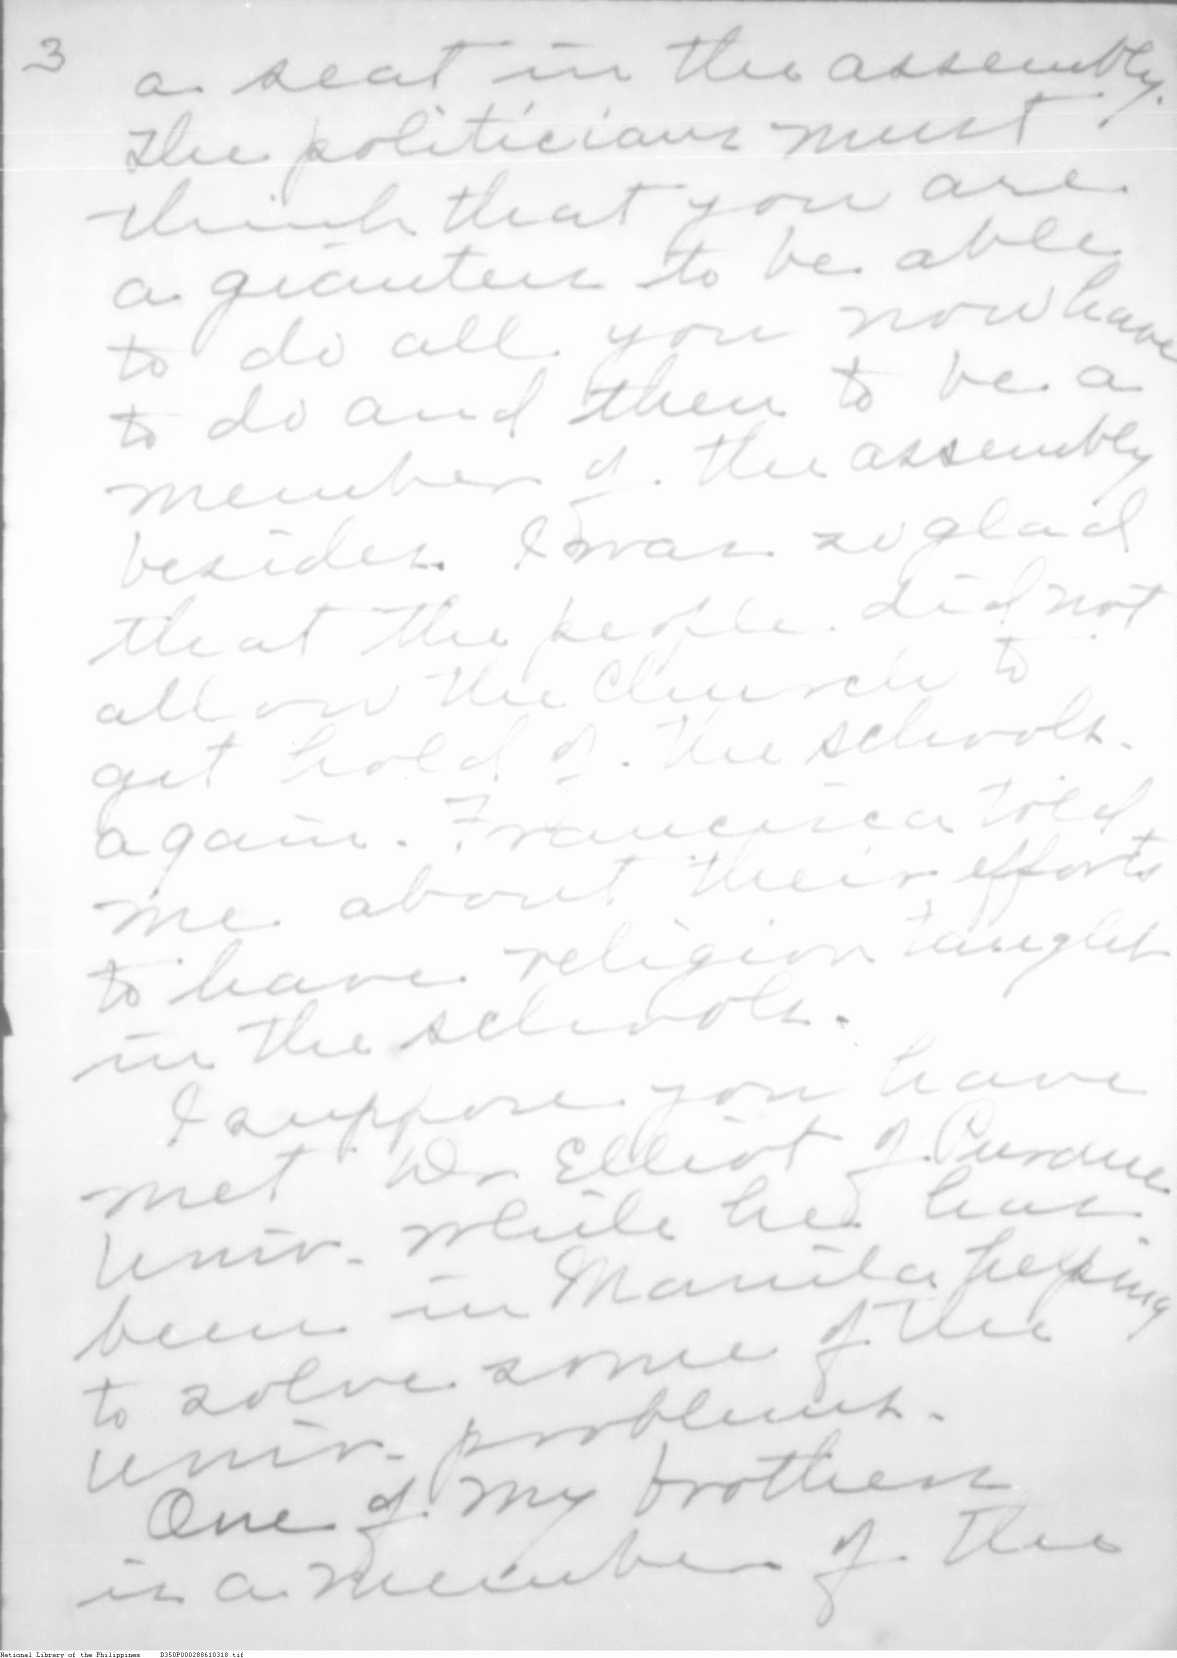 3
a seat in the assembly.
The politicians must
think that you are
a giantess to be able
to do all you now have
to do and then to be a
member of the assembly
besides. I was so glad
that the people did not
allow the Church to
get hold of the schools
again. Francisca told
me about their efforts
to have religion taught
in the schools.
I suppose you have
met Dr Elliot of Purdue
Univ. while he has
been in Manila helping
to solve some of the
Univ. problems.
One of my brothers
is a member of the
National Library of the Philippines D350P000288610318.tif